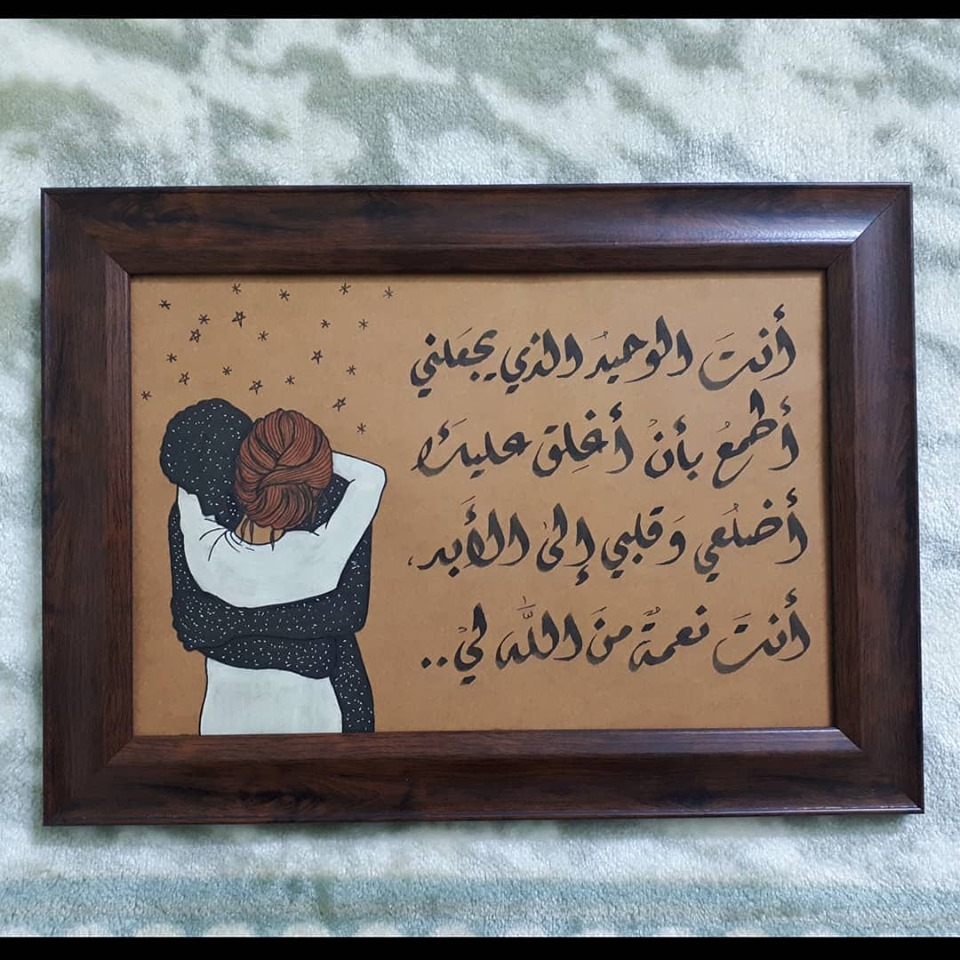 أنتَ الوحيدُ الذي يجعَلني
أطمعُ بأنْ أغلِقَ عليكَ
أضلُعي وَقلبي إلىٰ الأَبد،
أنتَ نعمةٌ منَ اللَّه ليْ..